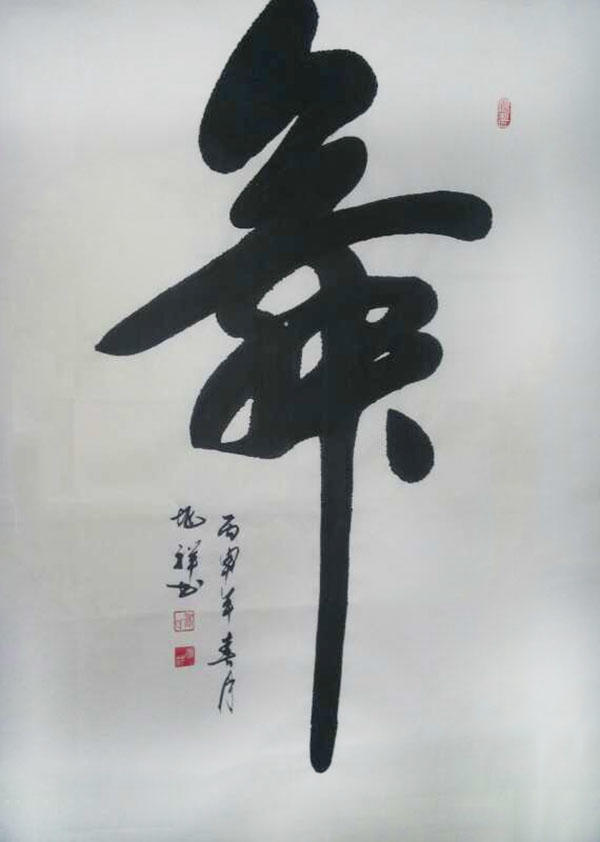 舞
丙申年春月
祥书